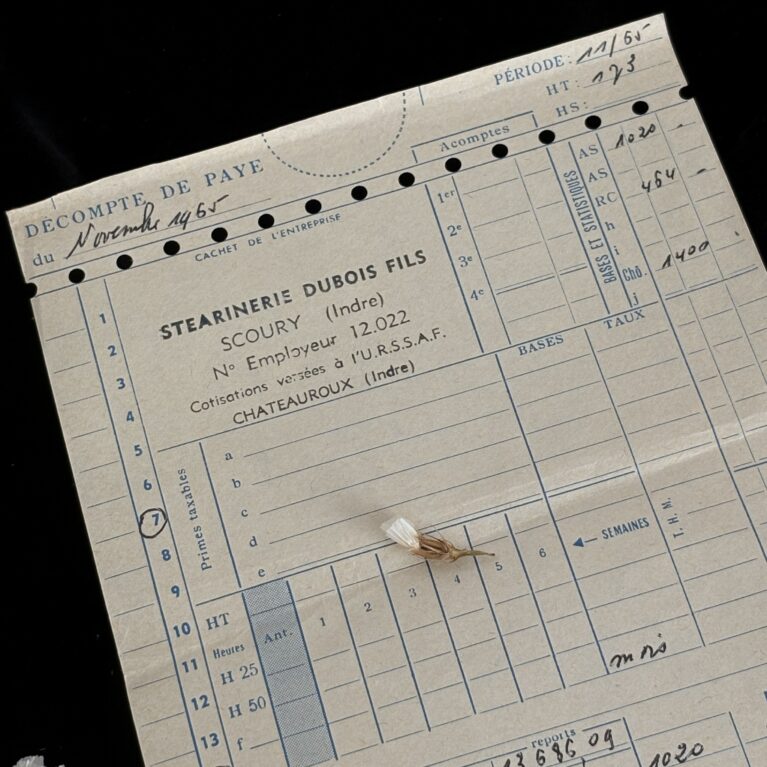 PÉRIODE: 11/65
HT: 173
HS:
DÉCOMPTE DE PAYE
du Novembre 1965
CACHET DE L'ENTREPRISE
STEARINERIE DUBOIS FILS
SCOURY (Indre)
N° Employeur 12.022
Cotisations versées à l'U.R.S.S.A.F.
CHATEAUROUX (Indre)
Acomptes
1er
2e
3e
4e
BASES ET STATISTIQUES
AS 1020 -
AS
RC 464 -
h
i
Chô. 1400 .
j
BASES
TAUX
1
2
3
4
5
6
7
8
9
10
11
12
13
Primes taxables
a
b
c
d
e
Ant. 1 2 3 4 5 6
SEMAINES
T. H. M.
HT
Heures
H 25
H 50
f
mois
reports
13 686 09
1020